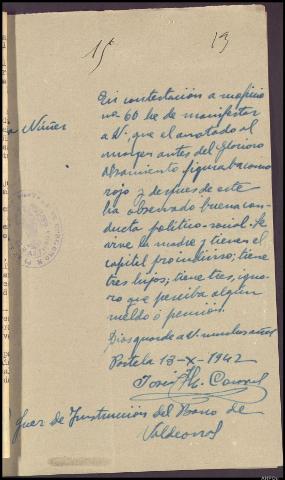 15
13
En contestación a su oficio
nº 60 he de manifestar
a V. que el anotado al
margen antes del Glorioso
Alzamiento figuraba como
rojo y despues de este
ha observado buena con-
ducta politico-social. Le
vive la madre y tienen el
capital proindiviso; tiene
tres hijos; tiene tres, igno-
ro que perciba algún
sueldo ó pensión.
Dios guarde a V. muchos años
Portela 13-X-1942
José
Núñez
Juez de Instrucción del Barco de
Valdeorras